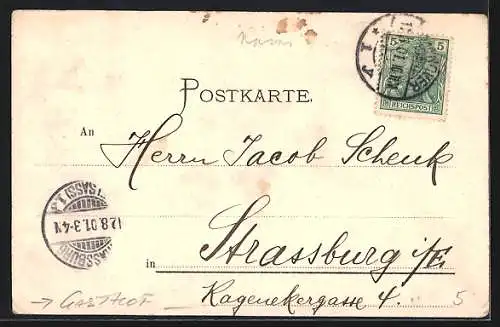 5 5
REICHSPOST
POSTKARTE.
An
Herrn Jacob Schenk
STRASSBURG
12.8.01.3-4N
(ELSASS)
in Strassburg i/E.
Kageneckergasse 4.
5